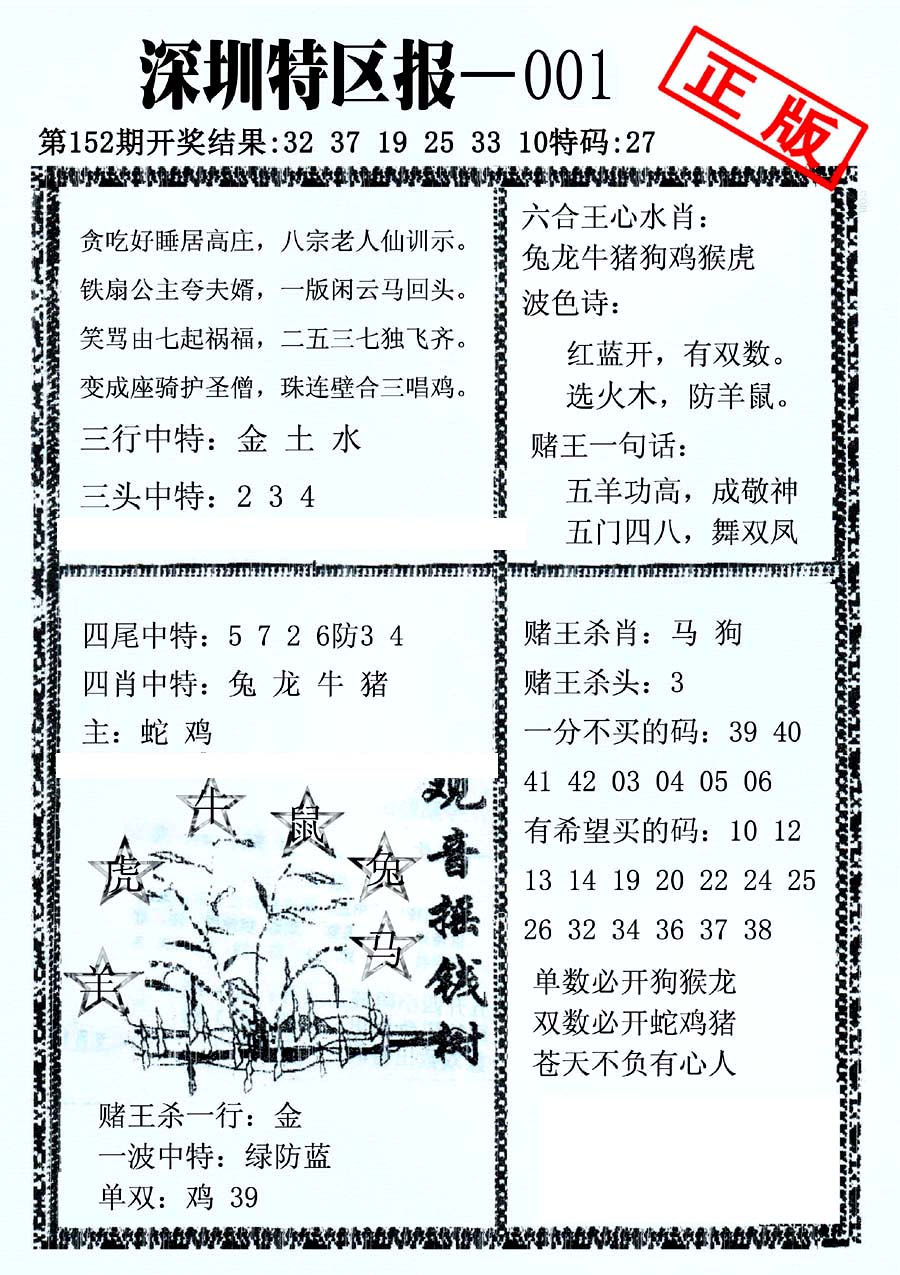 深圳特区报—001
正版
第152期开奖结果:32 37 19 25 33 10特码:27
贪吃好睡居高庄，八宗老人仙训示。
铁扇公主夸夫婿，一版闲云马回头。
笑骂由七起祸福，二五三七独飞齐。
变成座骑护圣僧，珠连壁合三唱鸡。
三行中特：金 土 水
三头中特：2 3 4
六合王心水肖：
兔龙牛猪狗鸡猴虎
波色诗：
红蓝开，有双数。
选火木，防羊鼠。
赌王一句话：
五羊功高，成敬神
五门四八，舞双凤
四尾中特：5 7 2 6防3 4
四肖中特：兔 龙 牛 猪
主：蛇 鸡
牛
鼠
虎
兔
马
羊
观音摇钱树
赌王杀一行：金
一波中特：绿防蓝
单双：鸡 39
赌王杀肖：马 狗
赌王杀头：3
一分不买的码：39 40
41 42 03 04 05 06
有希望买的码：10 12
13 14 19 20 22 24 25
26 32 34 36 37 38
单数必开狗猴龙
双数必开蛇鸡猪
苍天不负有心人